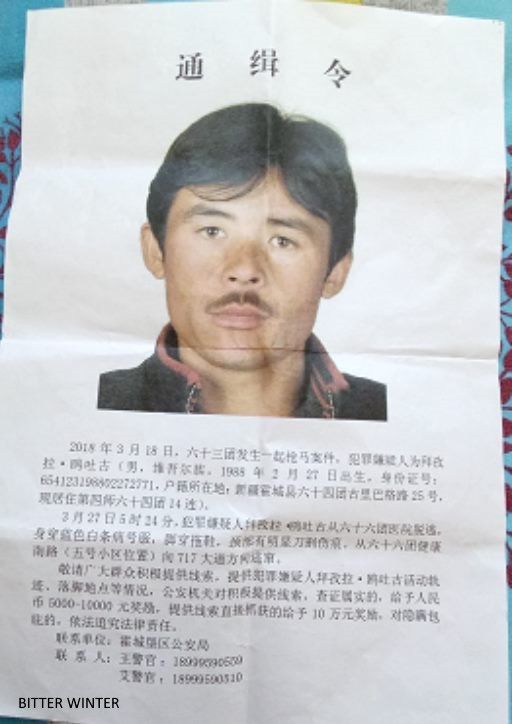 通缉令
2018年3月18日，六十三团发生一起枪马案件，犯罪嫌疑人为拜孜
拉·鸥吐古（男，维吾尔族，1988年2月27日出生，身份证号：
654123198802272771，户籍所在地：新疆霍城县六十四团古里巴格路25号，
现居住第四师六十四团14连）。
3月27日5时24分，犯罪嫌疑人拜孜拉·鸥吐古从六十六团医院脱逃，
身穿蓝色白条病号服，脚穿拖鞋，颈部有明显刀刺伤痕，从六十六团健康
南路（五号小区位置）向717大道方向逃窜。
敬请广大群众积极提供线索，提供犯罪嫌疑人拜孜拉·鸥吐古活动轨
迹、落脚地点等情况，公安机关对积极提供线索，查证属实的，给予人民
币5000-10000元奖励，提供线索直接抓获的给予10万元奖励，对隐瞒包
庇的，依法追究法律责任。
联系单位：霍城垦区公安局
联系人：王警官：18999590559
艾警官：18999590510
BITTER WINTER